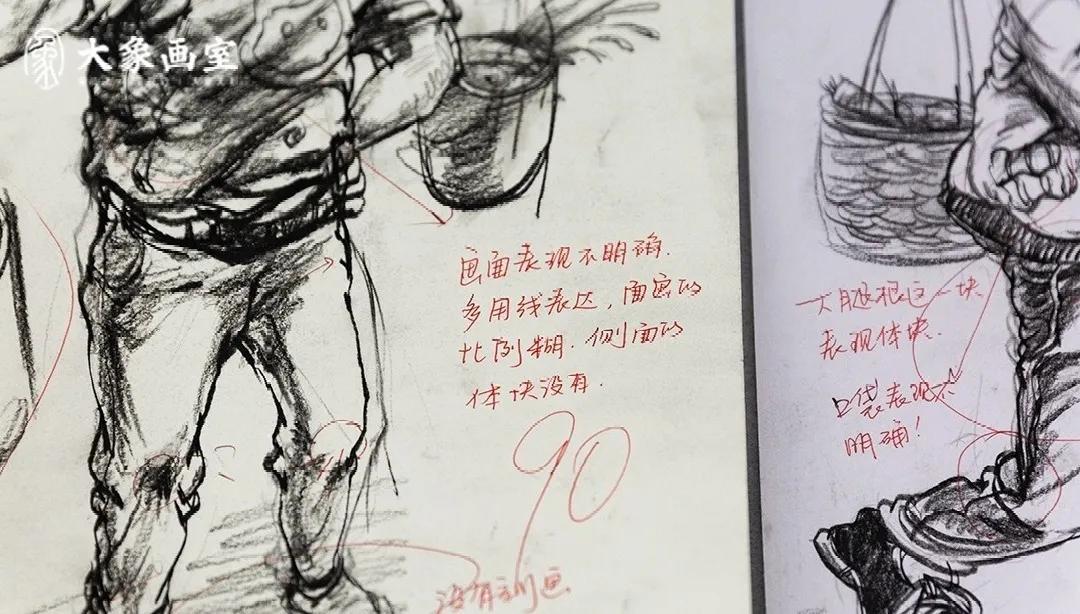 大象画室
画面表现不明确.
多用线表达,画面的
比例糊.侧面的
体块没有.
90
没有刻画
大腿根这一块
表现体块.
口袋表现不
明确!